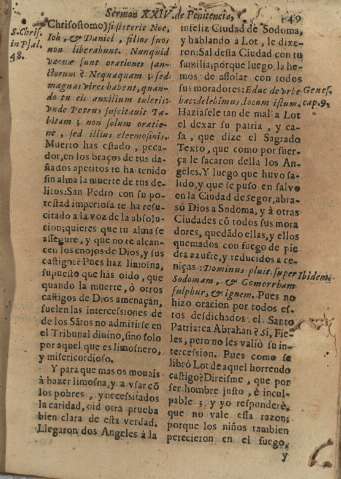 Sermon XXIV. de Penitencia,
149
S. Chris.
in Psal.
48.
Chrisostomo) si steteris Noe,
Iob, & Daniel, filios suos
non liberabunt. Nunquid
vacuæ sunt orationes san-
ctorum? Nequaquam; sed
magnas vires habent, quando
tu eis auxilium tuleris:
Petrus suscitauit Ta-
bitam; non solum oratio-
ne, sed illius eleemosinis.
Muerto has estado, peca-
dor, en los braços de tus da-
ñados apetitos te ha tenido
sin alma la muerte de tus de-
litos: San Pedro con su po-
testad imperiosa te ha resu-
citado a la voz de la absolu-
cion; quieres que tu alma se
assegure, y que no te alcan-
cen los enojos de Dios, y sus
castigos? Pues haz limosna,
supuesto que has oido, que
quando la muerte, ò otros
castigos de Dios amenaçan,
suelen las intercessiones de
de los Sãtos no admitirse en
el Tribunal diuino, sino solo
por aquel que es limosnero,
y misericordioso.
Y para que mas os mouais
à hazer limosna, y a vsar cõ
los pobres, y necessitados
la caridad, oid otra prueba
bien clara de esta verdad.
Llegaron dos Angeles à la
infeliz Ciudad de Sodoma,
y hablando a Lot, le dixe-
ron: Sal desta Ciudad con tu
familia, porque luego la he-
mos de assolar con todos
sus moradores: Educ de vrbe
hac; delebimus locum istum,
Genes.
cap. 9.
Haziasele tan de mal a Lot
el dexar su patria, y ca-
sa, que dize el Sagrado
Texto, que como por fuer-
ça le sacaron della los An-
geles. Y luego que huvo sa-
lido, y que se puso en salvo
en la Ciudad de Segor, abra-
sò Dios a Sodoma, y à otras
Ciudades cõ todos sus mora
dores, quedãdo ellas, y ellos
quemados con fuego de pie
dra azufre, y reducidos a ce-
niças: Dominus pluit super
Ibidem.
Sodomam, & Gomorrham
sulphur, & ignem. Pues no
hizo oracion por todos es-
tos desdichados el Santo
Patriarca Abrahan? Si, Fie-
les, pero no les valiò su in-
tercession. Pues como se
librò Lot de aquel horrendo
castigo? Direisme, que por
ser hombre justo, è incul-
pable; y yo responderè,
que no vale esta razon;
porque los niños tambien
perecieron en el fuego,
y